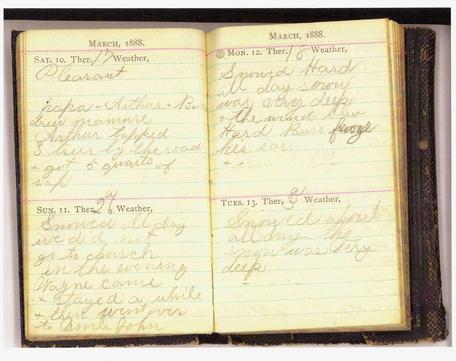 MARCH, 1888.
SAT. 10. Ther. Weather,
Pleasant
papa + Arthur + Burr
drew meanure
Arthur tapped
3 trees by the road
+ got 5 quarts of
sap
SUN. 11. Ther. 26 Weather,
Snowed all day
we did not
go to church
in the evening
Wayne came
+ stayed a while
+ then went over
to uncle John
MARCH, 1888.
MON. 12. Ther. 18 Weather,
Snowed Hard
all day snow
was very deep
+ the wind blew
Hard Burr froze
his ear
TUES. 13. Ther. 3 Weather,
Snowed about
all day the
snow was very
deep